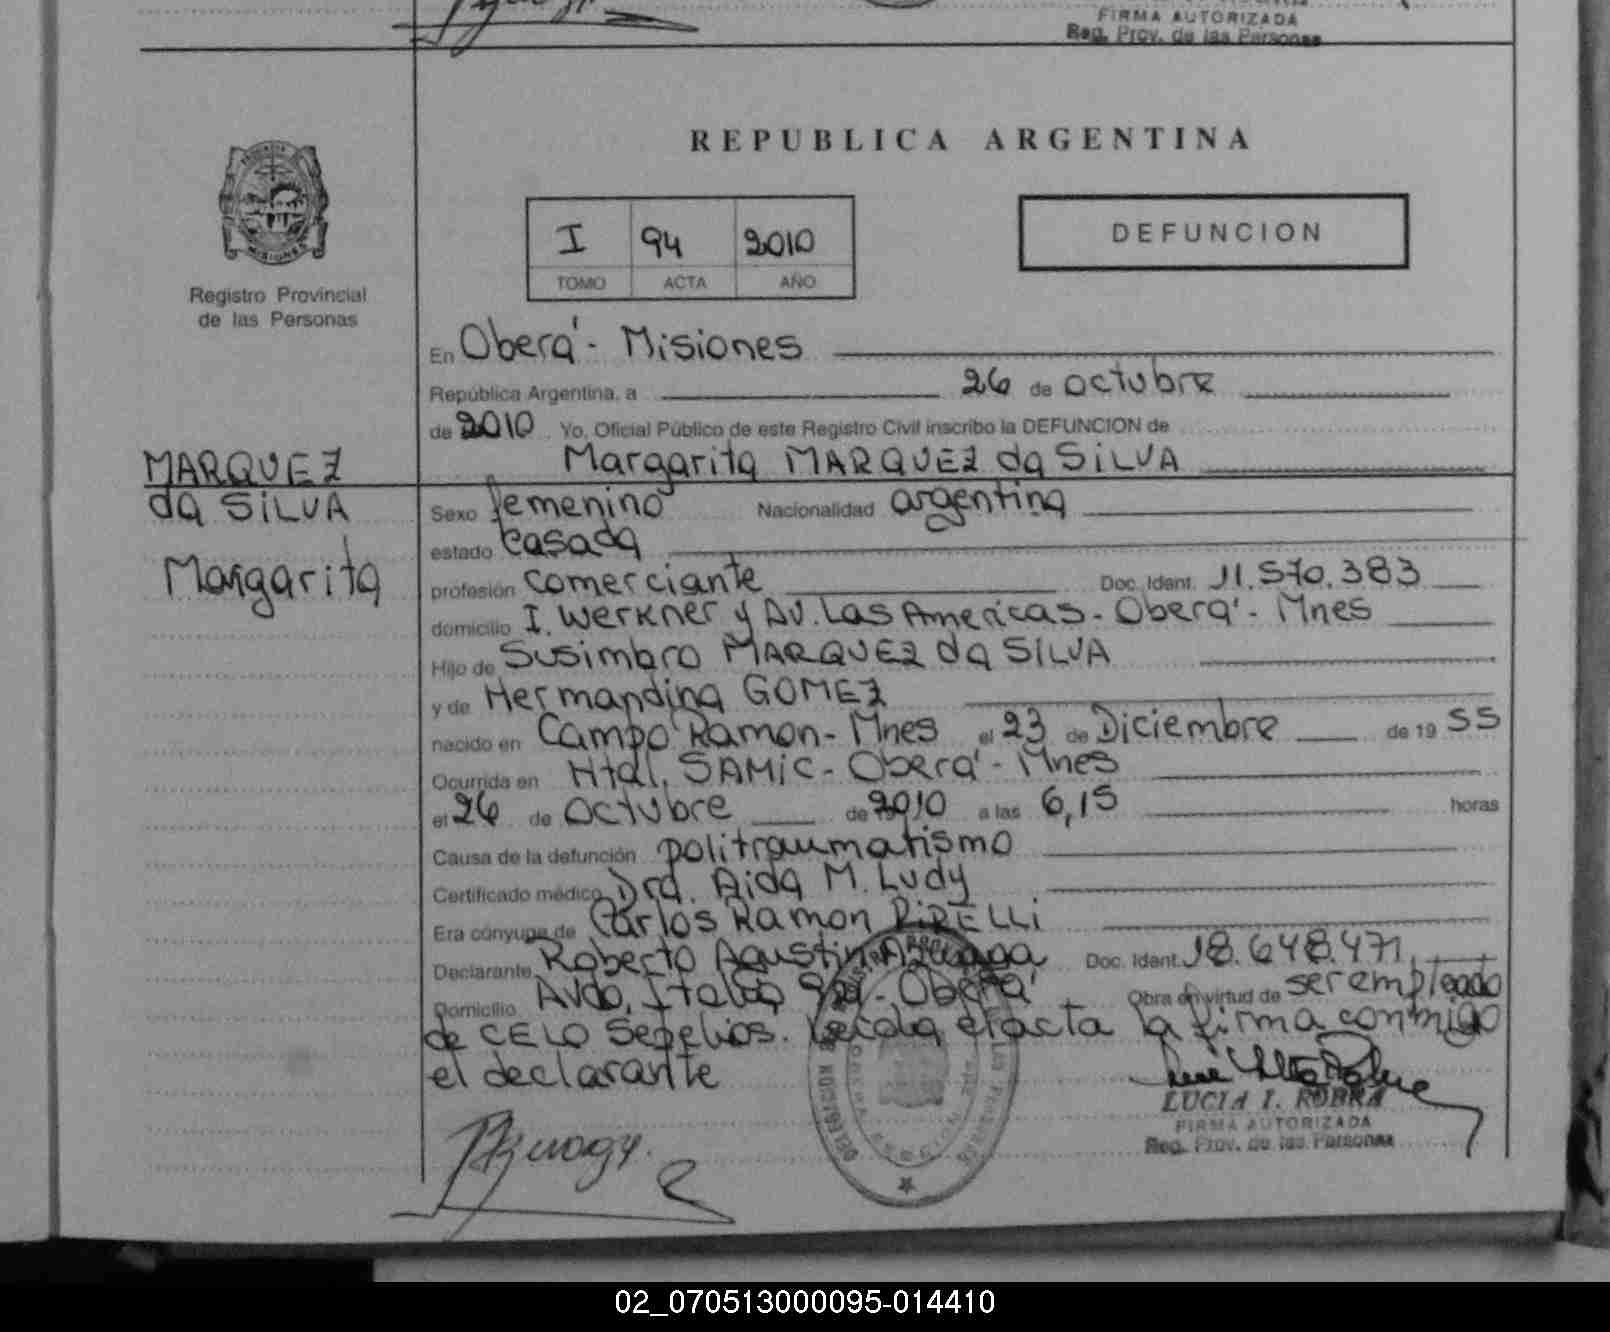 FIRMA AUTORIZADA
Reg. Prov. de las Personas
REPUBLICA ARGENTINA
MISIONES
Registro Provincial
de las Personas
I 94 2010
TOMO ACTA AÑO
DEFUNCION
En Oberá - Misiones
República Argentina, a 26 de octubre
de 2010 Yo, Oficial Público de este Registro Civil inscribo la DEFUNCION de
Margarita MARQUEZ da SILVA
MARQUEZ
da SILVA
Margarita
Sexo femenino Nacionalidad argentina
estado casada
profesión comerciante Doc. Ident. 11.570.383
domicilio I. Werkner y Av. Las Americas - Oberá - Mnes
Hijo de Susimbro MARQUEZ da SILVA
y de Hermandina GOMEZ
nacido en Campo Ramon - Mnes el 23 de Diciembre de 19 55
Ocurrida en Htal. SAMIC - Oberá - Mnes
el 26 de octubre de 2010 a las 6,15 horas
Causa de la defunción politraumatismo
Certificado médico Dra. Aida M. Ludy
Era cónyuge de Carlos Ramon PIRELLI
Declarante Roberto Agustin Doc. Ident. 18.648.471
Domicilio Avda. Italia - Oberá Obra en virtud de ser empleado
de CELO Sepelios. Leida el acta la firma conmigo
el declarante
LUCIA I. ROBRA
FIRMA AUTORIZADA
Reg. Prov. de las Personas
02_070513000095-014410